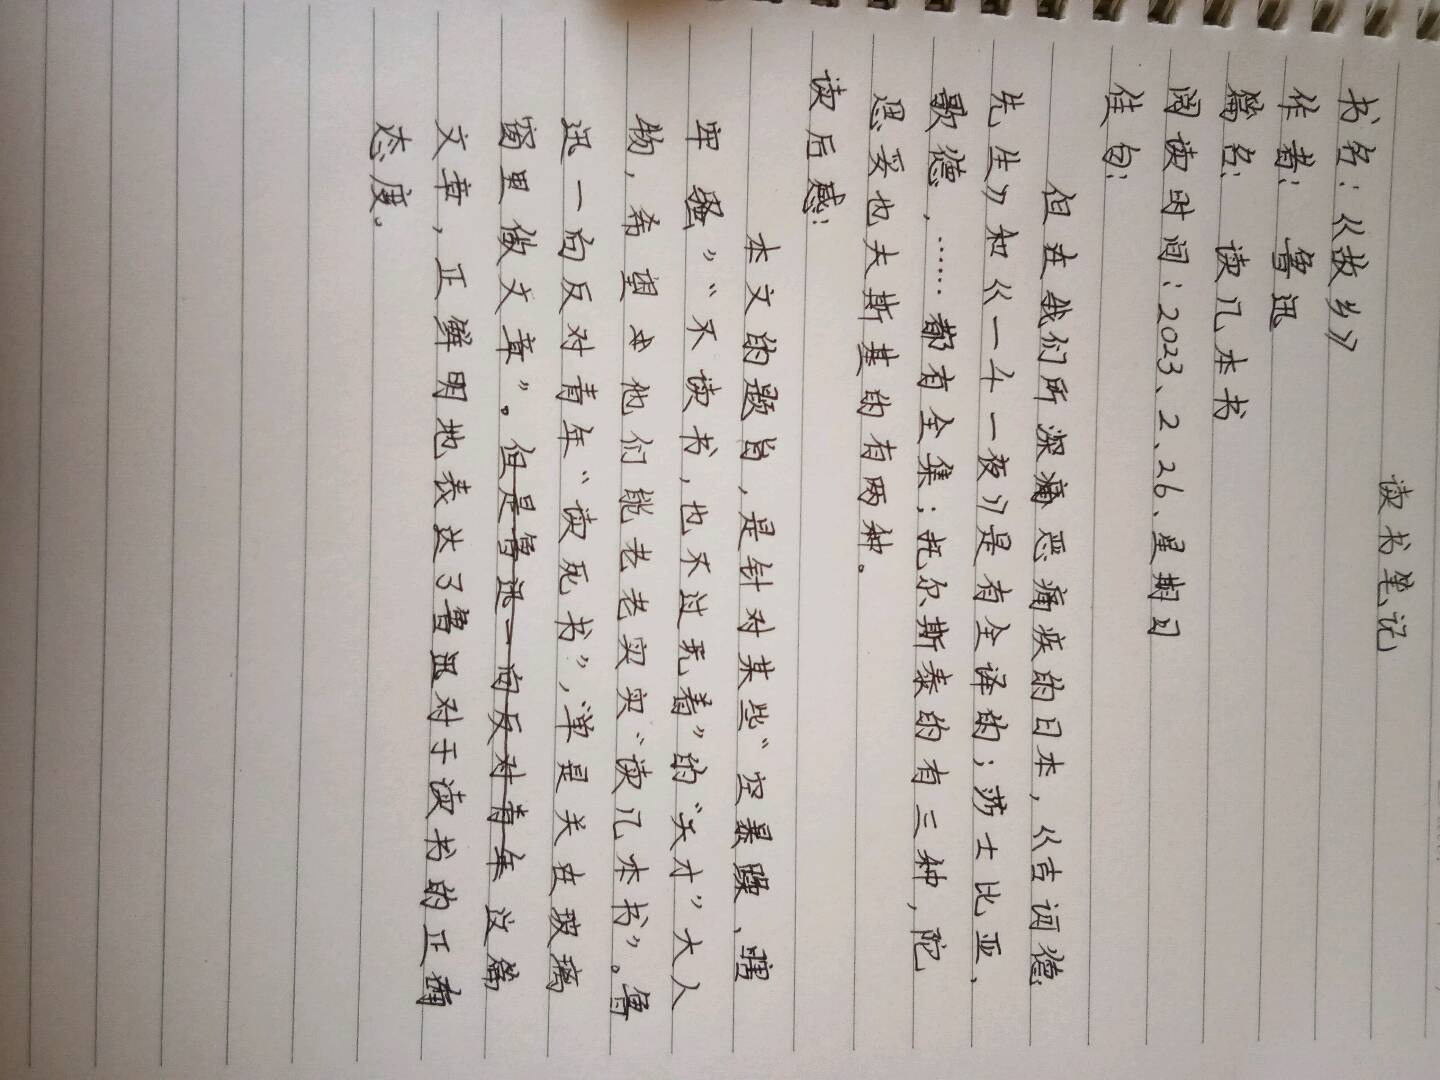 读书笔记
书名：《故乡》
作者：鲁迅
篇名：读几本书
阅读时间：2023、2、26、星期日
佳句：
但在我们所深痛恶痛疾的日本，《吉诃德
先生》和《一千一夜》是有全译的；莎士比亚、
歌德，……都有全集；托尔斯泰的有三种，陀
思妥也夫斯基的有两种。
读后感：
本文的题旨，是针对某些“空暴躁、瞎
牢骚”“不读书，也不过玩着”的“天才”大人
物，希望他们能老老实实“读几本书”。鲁
迅一向反对青年“读死书”，单是关在玻璃
窗里做文章”。但是鲁迅一向反对青年这篇
文章，正鲜明地表达了鲁迅对于读书的正确
态度。